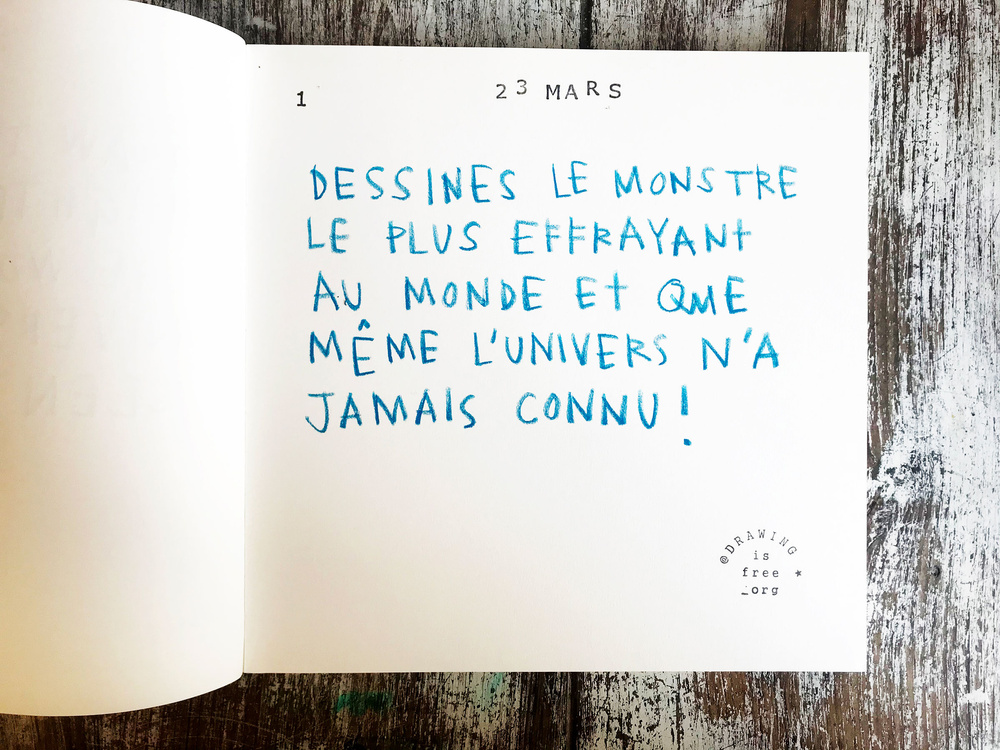 1
23 MARS
DESSINES LE MONSTRE
LE PLUS EFFRAYANT
AU MONDE ET QUE
MÊME L'UNIVERS N'A
JAMAIS CONNU !
@DRAWING
is
free *
_org